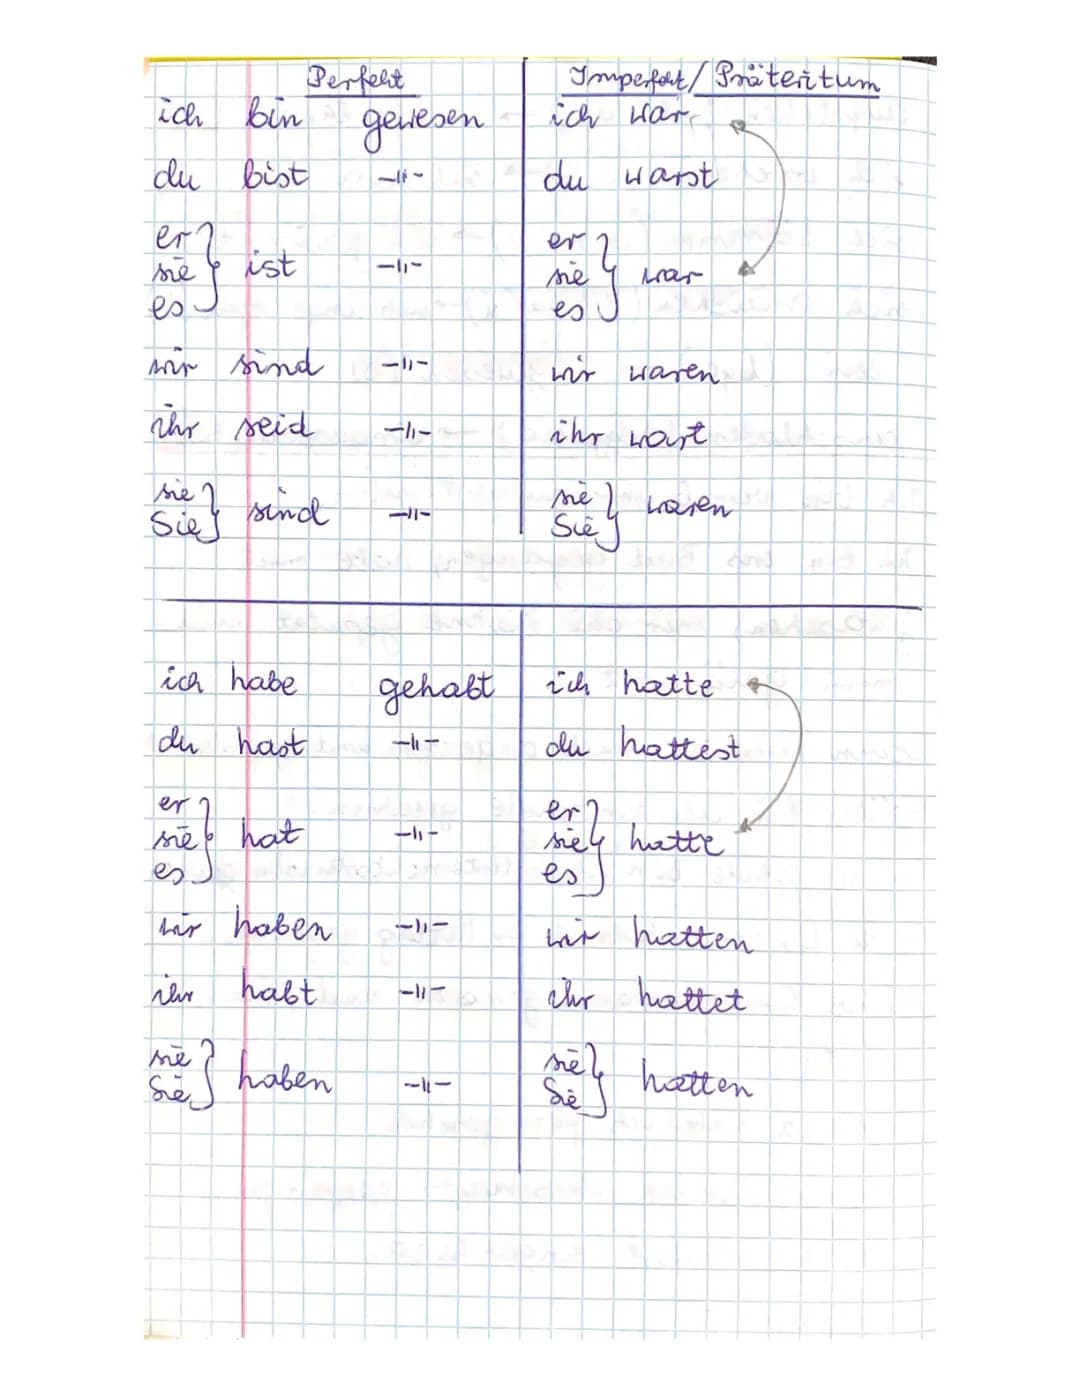 Perfekt Imperfekt/Präteritum
ich bin gewesen ich war
du bist -||- du warst
er er
sie ist -||- sie war
es es
wir sind -||- wir waren
ihr seid -||- ihr wart
sie sind -||- sie waren
Sie Sie
ich habe gehabt ich hatte
du hast -||- du hattest
er er
sie hat -||- sie hatte
es es
wir haben -||- wir hatten
ihr habt -||- ihr hattet
sie haben -||- sie hatten
Sie Sie